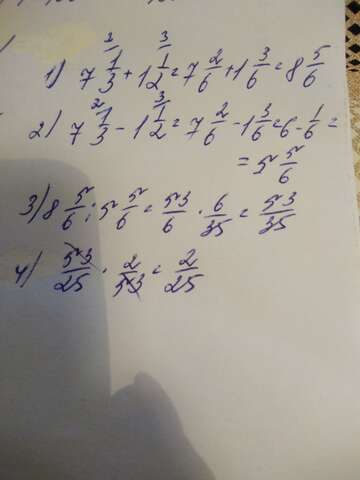 1) 7 1/3 + 1 1/2 = 7 2/6 + 1 3/6 = 8 5/6
2) 7 1/3 - 1 1/2 = 7 2/6 - 1 3/6 = 6 - 1/6 =
= 5 5/6
3) 8 5/6 : 5 5/6 = 53/6 · 6/35 = 53/35
4) 53/25 · 2/53 = 2/25